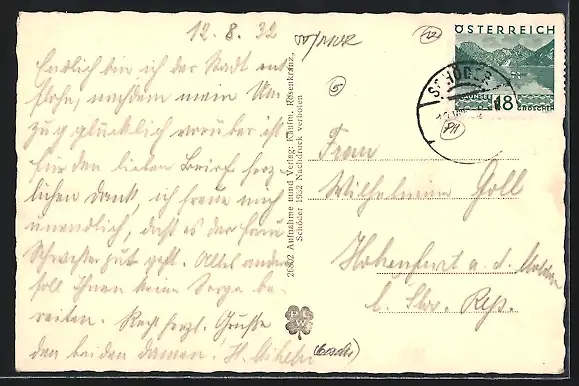 12. 8. 32
Endlich bin ich der Stadt ent
flohn, nachdem mein Um
zug glücklich vorüber ist
für den lieben Brief herz
lichen Dank, ich freue mich
unendlich, daß es der Frau
Schwester gut geht. Alles andere
soll Ihnen keine Sorge be-
reiten. Recht herzl. Grüsse
den beiden Damen. H.
26802 Aufnahme und Verlag: Kunstn. Rosenkranz,
Schöder 1932 Nachdruck verboten
P L W G
ÖSTERREICH
18
GROSCHEN
SCHÖDER
12
6
Frau
Wilhelmine Goll
Hohenfurt a. d. Moldau
Č. Slov. Rep.